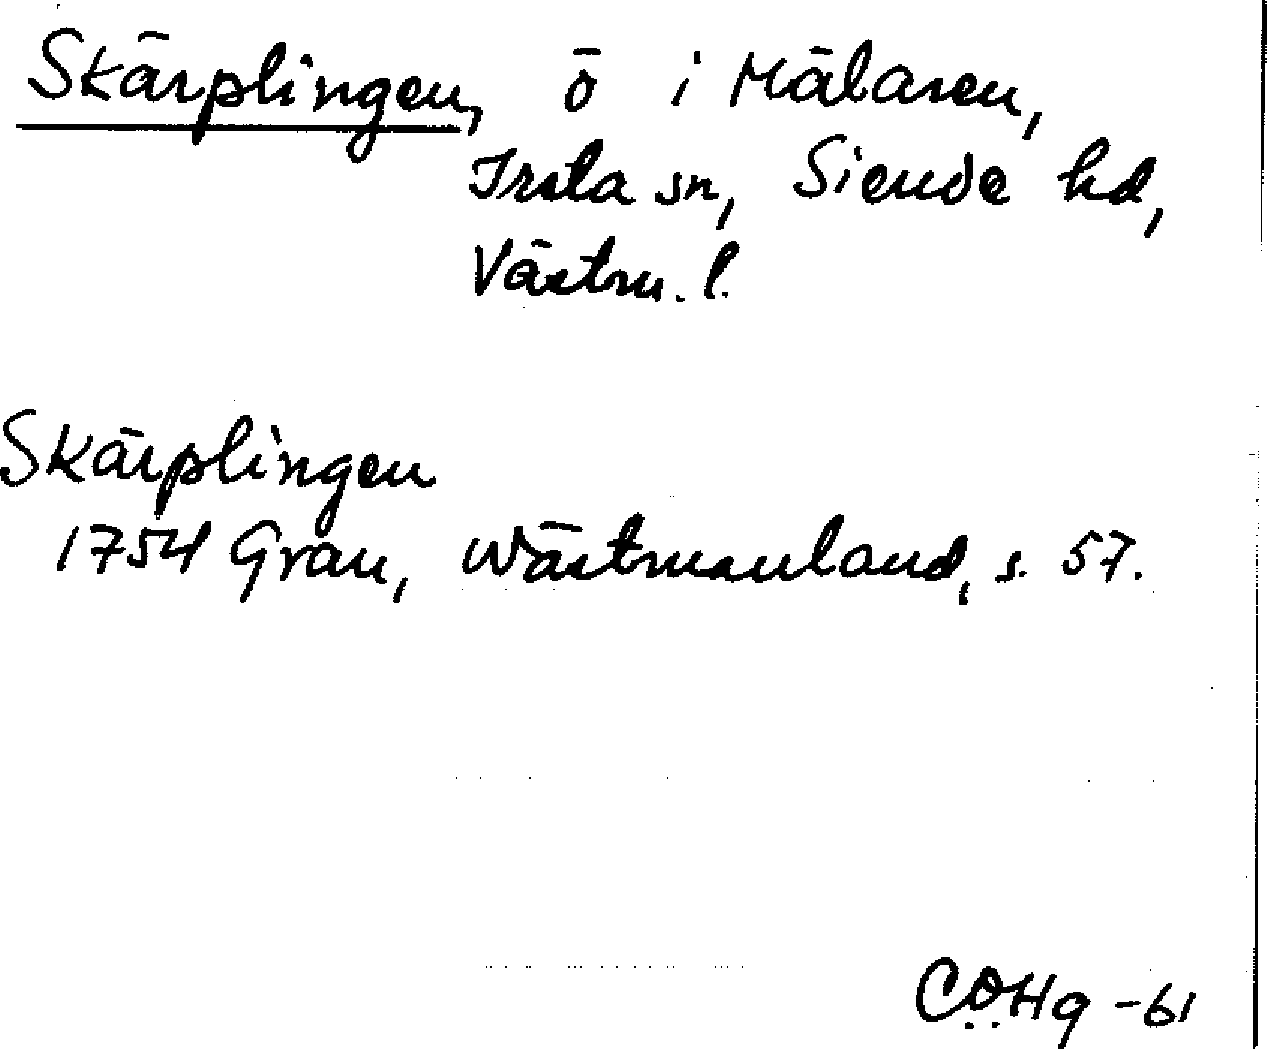 Skärplingen, ö i Mälaren,
Irsta sn, Siende hd,
Västm. l.
Skärplingen
1754 Grau, Wästmanland, s. 57.
CÖHg -61